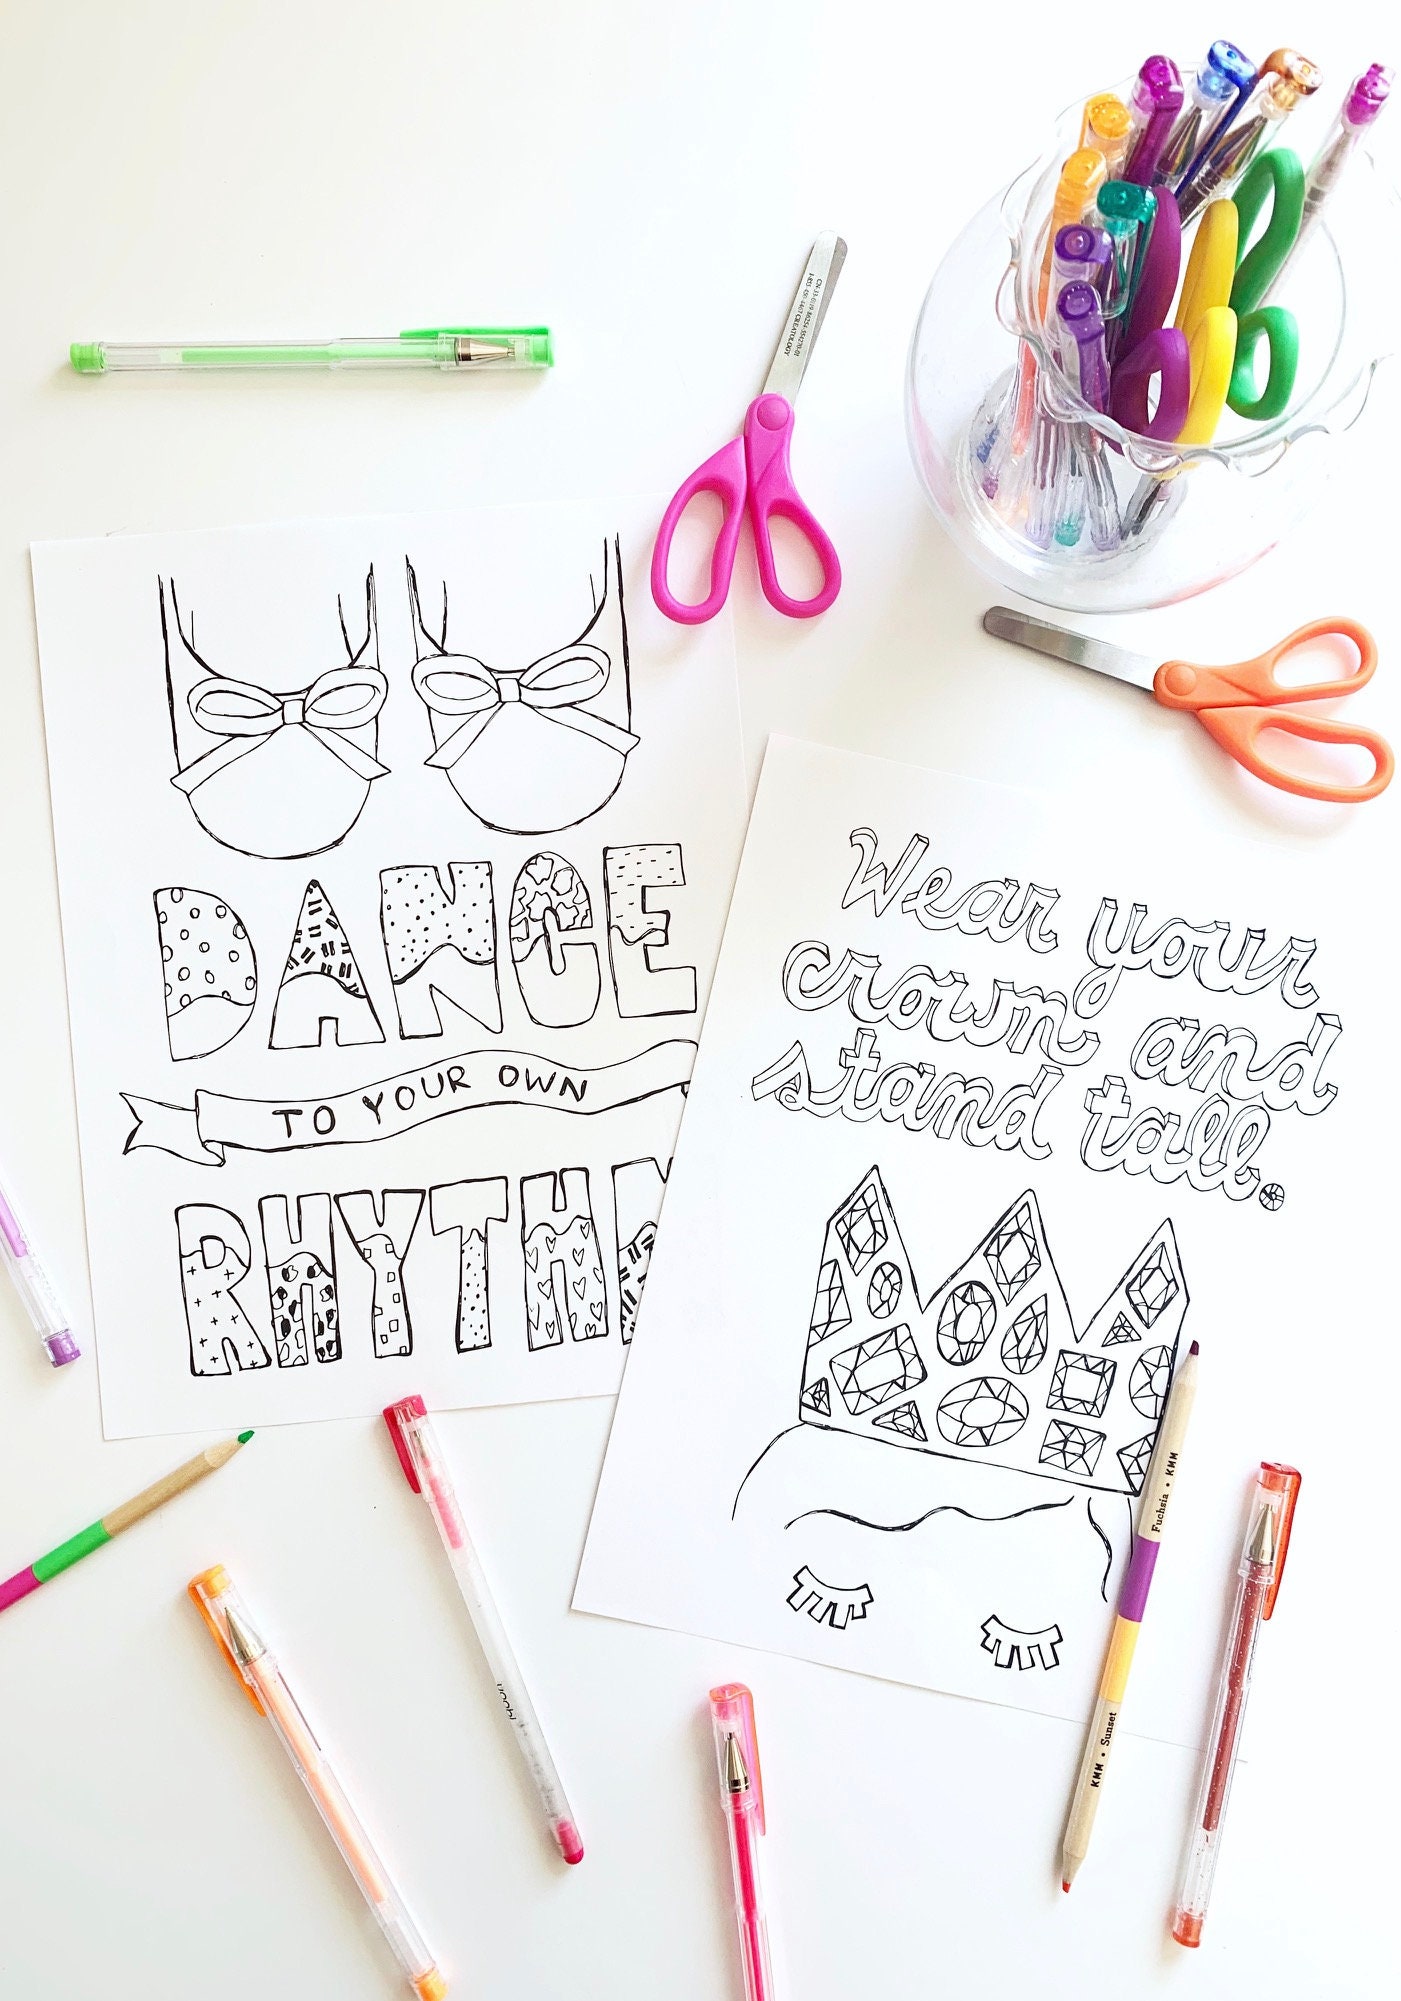 DANCE
TO YOUR OWN
RHYTH
Wear your
crown and
stand tall.
Fuchsia • KMM
KMM • Sunset
CREATOLOGY
yoobi